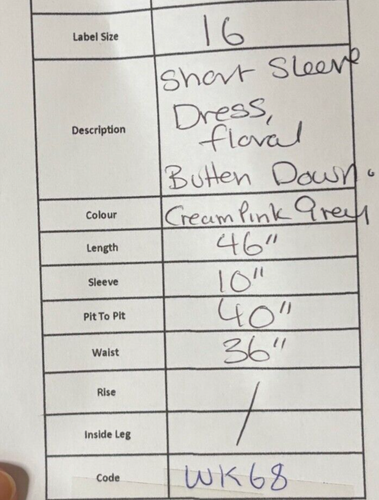 Label Size 16
Description Short Sleeve
Dress,
floral
Butten Down.
Colour Cream Pink Grey
Length 46"
Sleeve 10"
Pit To Pit 40"
Waist 36"
Rise
Inside Leg /
Code WK68